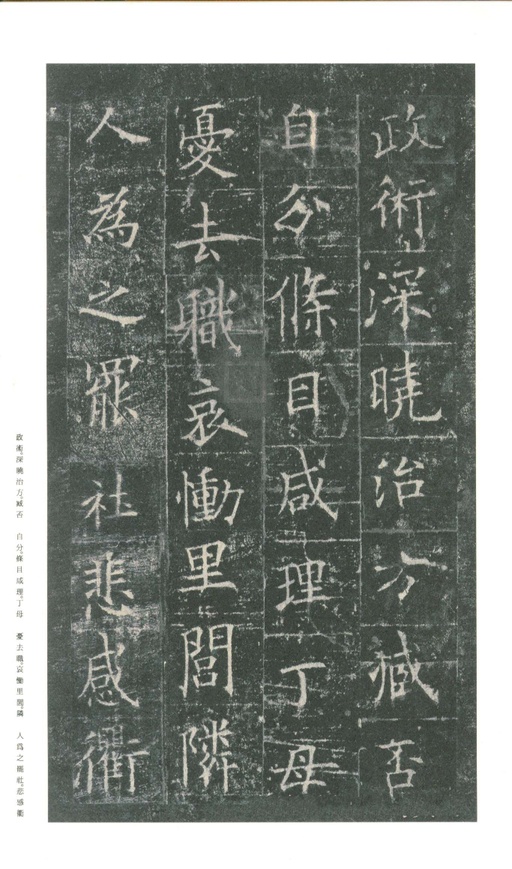 政術深曉治方臧否
自分條目咸理丁母
憂去職哀慟里閭隣
人為之罷社悲感衢
政術。深曉治方、臧否　自分、條目咸理。丁母　憂去職、哀慟里閭。隣　人爲之罷社。悲感衢